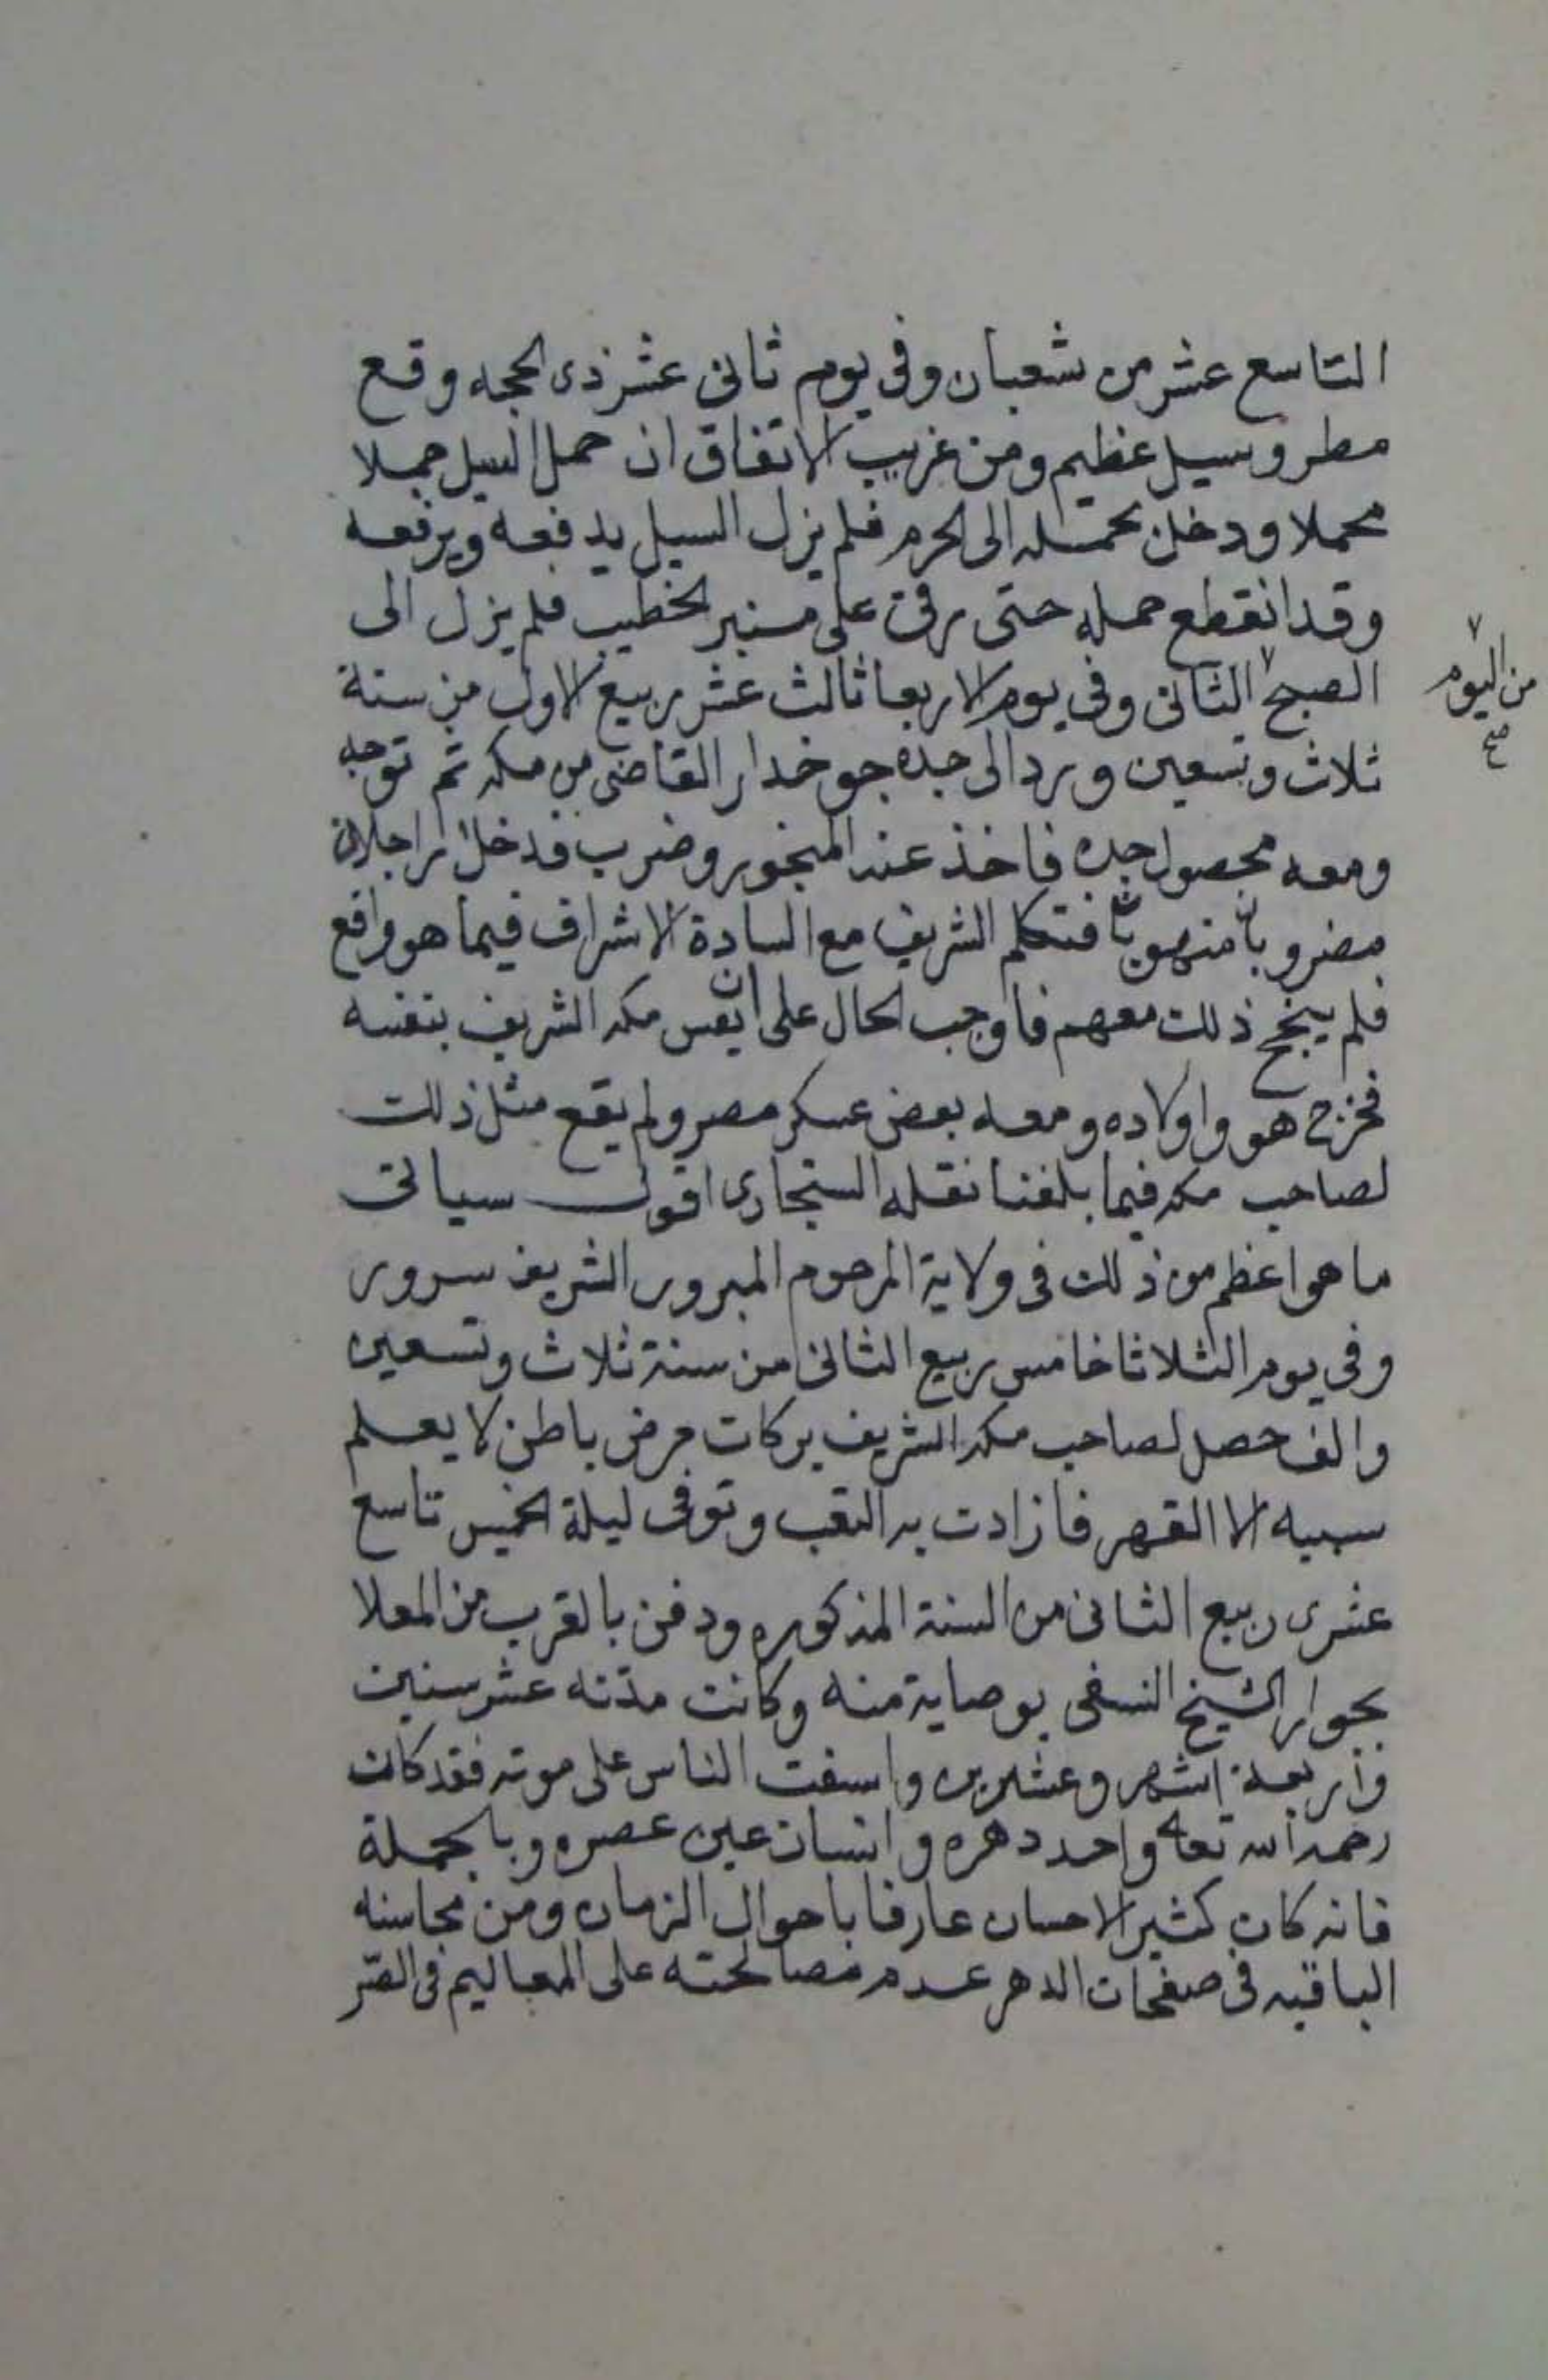 التاسع عشر من شعبان وفى يوم ثانى عشر ذى الحجه وقع
مطر وسيل عظيم ومن غريب الاتفاق ان حمل السيل جملا
محملا ودخل بحمله الى الحرم فلم يزل السيل يدفعه ويرفعه
وقد انقطع حمله حتى رقى على منبر الخطيب فلم يزل الى
الصبح الثانى وفى يوم الاربعا ثالث عشر ربيع الاول من سنة
من اليوم
صح
ثلاث وتسعين ورد الى جده جوخدار القاضى من مكه ثم توجه
ومعه محصول جده فاخذ عند المنجور وضرب فدخل راجلان
مضروبا منهوبا فتكلم الشريف مع السادة الاشراف فيما هو واقع
فلم ينجح ذلك معهم فاوجب الحال على ان يعس مكه الشريف بنفسه
فخرج هو واولاده ومعه بعض عسكر مصر ولم يقع مثل ذلك
لصاحب مكه فيما بلغنا نقله السنجارى اقول سياتى
ما هو اعظم من ذلك فى ولاية المرحوم المبرور الشريف سرور
وفى يوم الثلاثا خامس ربيع الثانى من سنة ثلاث وتسعين
والف حصل لصاحب مكه الشريف بركات مرض باطن لا يعلم
سببه الا القهر فازادت به التعب وتوفى ليلة الخميس تاسع
عشرى ربيع الثانى من السنة المذكوره ودفن بالقرب من المعلا
بجوار الشيخ النسفى بوصاية منه وكانت مدته عشر سنين
واربعة اشهر وعشرين واسفت الناس على موته فقد كان
رحمه الله تعالى واحد دهره وانسان عين عصره وبالجملة
فانه كان كثير الاحسان عارفا باحوال الزمان ومن محاسنه
الباقيه فى صفحات الدهر عدم مصالحته على المعاليم فى الصر